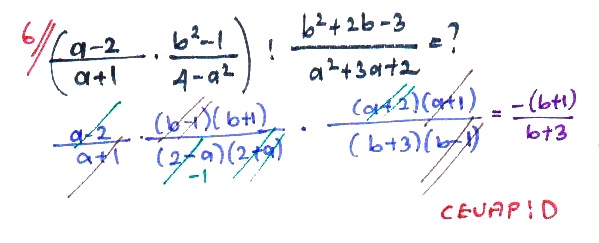 6// ( (a-2)/(a+1) · (b²-1)/(4-a²) ) : (b²+2b-3)/(a²+3a+2) = ?
(a-2)/(a+1) · (b-1)(b+1)/(2-a)(2+a) · (a+2)(a+1)/(b+3)(b-1) = -(b+1)/(b+3)
-1
CEVAP : D